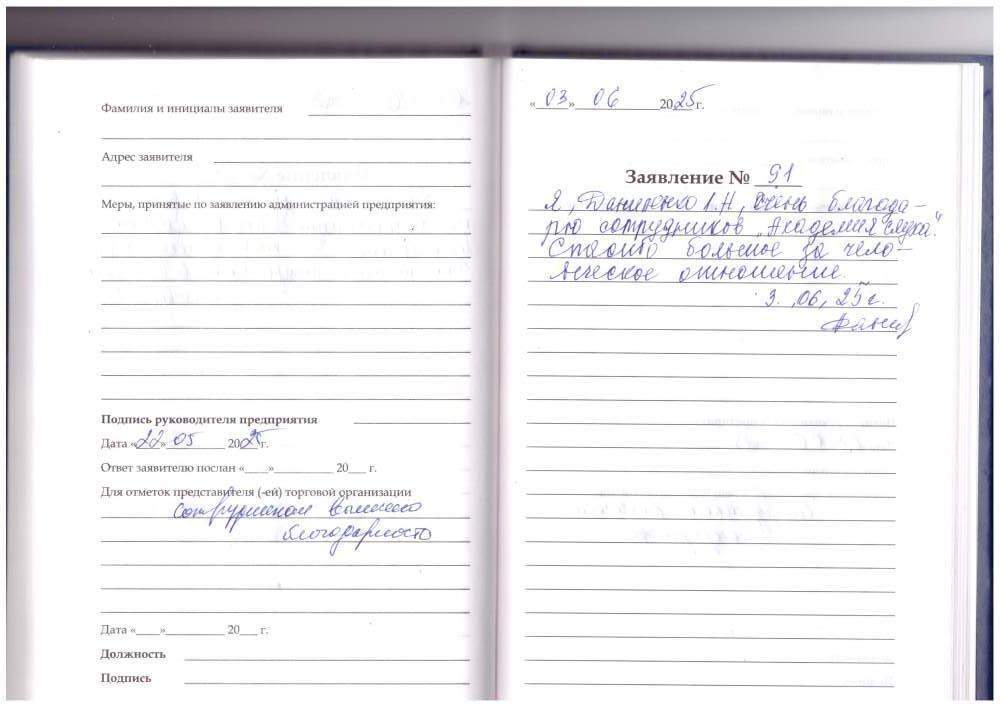 Фамилия и инициалы заявителя
Адрес заявителя
Меры, принятые по заявлению администрацией предприятия:
Подпись руководителя предприятия
Дата «22» 05 2025г.
Ответ заявителю послан «___»_________ 20___ г.
Для отметок представителя (-ей) торговой организации
сотрудникам вынесена
благодарность
Дата «___»_________ 20___ г.
Должность
Подпись
«03» 06 2025г.
Заявление № 91
Я, Даниленко Л.Н, очень благода-
рю сотрудников „Академия слуха".
Спасибо большое за чело-
веческое отношение.
3. 06, 25 г.